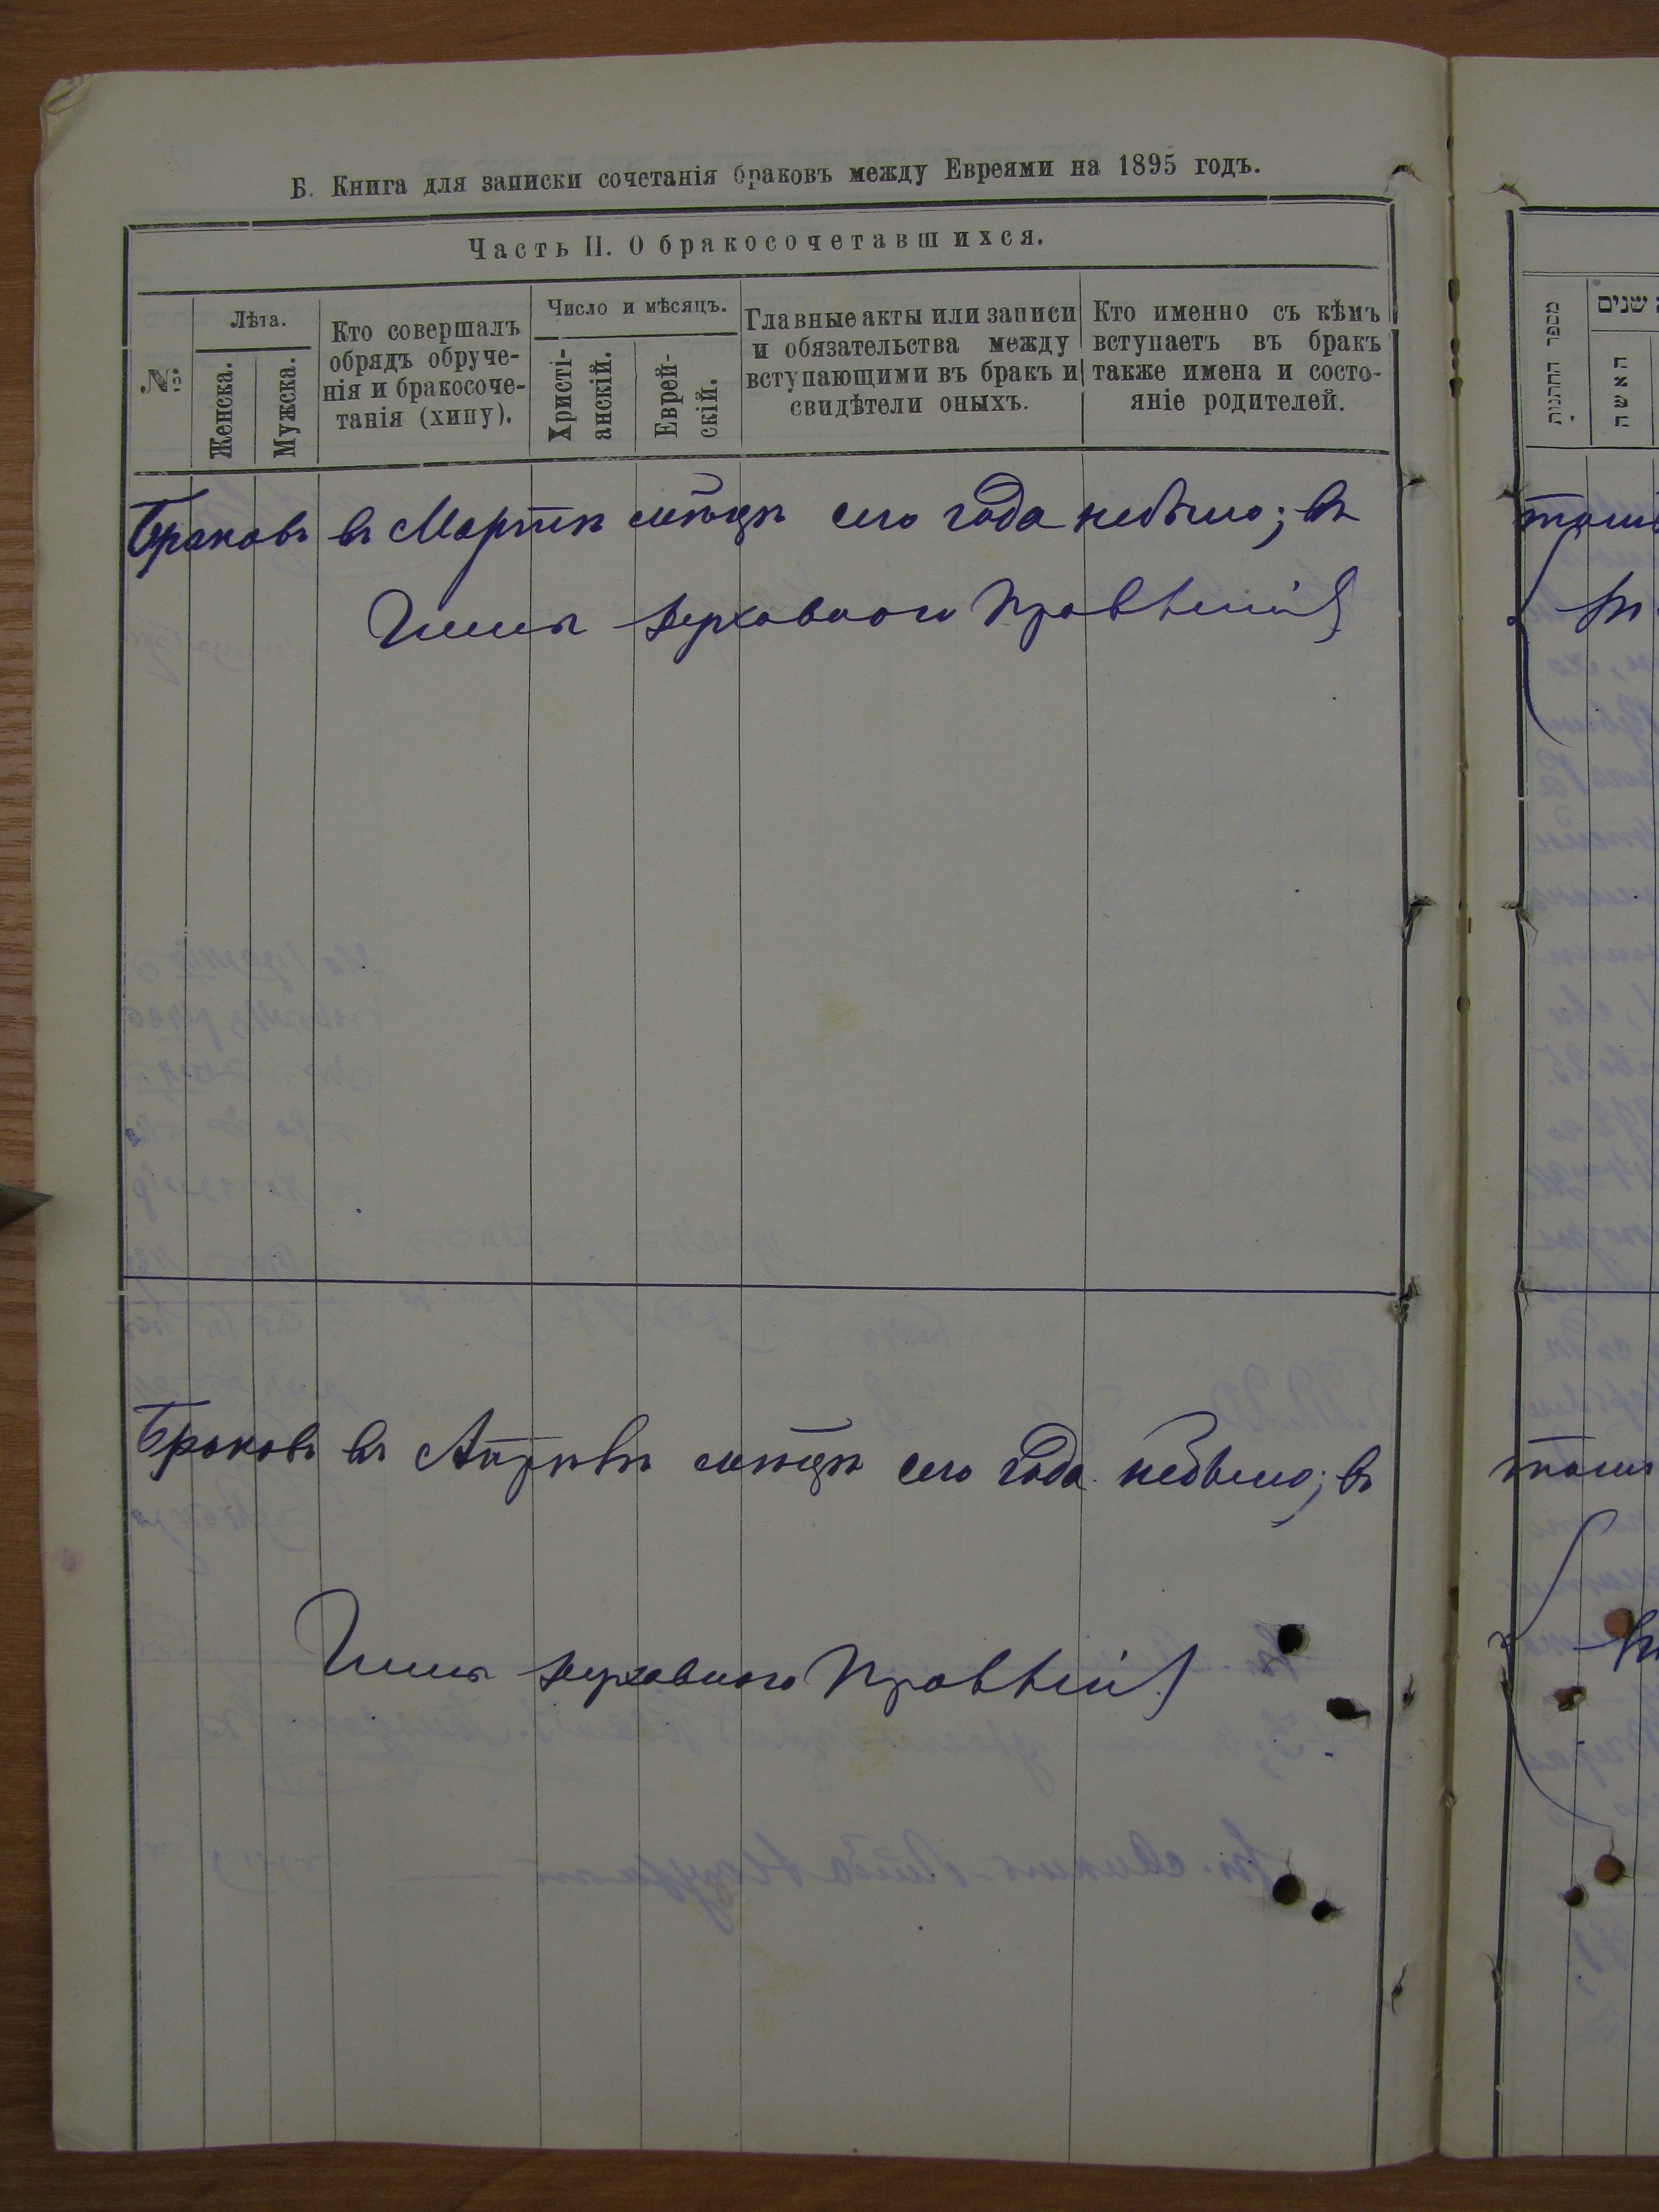 Б. Книга для записки сочетанія браковъ между Евреями на 1895 годъ.
Часть II. О бракосочетавшихся.
№
Лѣта.
Женска.
Мужска.
Кто совершалъ
обрядъ обруче-
нія и бракосоче-
танія (хипу).
Число и мѣсяцъ.
Христі-
анскій.
Еврей-
скій.
Главные акты или записи
и обязательства между
вступающими въ бракъ и
свидѣтели оныхъ.
Кто именно съ кѣмъ
вступаетъ въ бракъ
также имена и состо-
яніе родителей.
Браковъ въ Мартѣ мѣсцѣ сего года небыло; въ
Члены духовного Правленія
Браковъ въ Апрѣлѣ мѣсцѣ сего года небыло; въ
Члены духовного Правленія
מספר החתונות
שנים
האשה